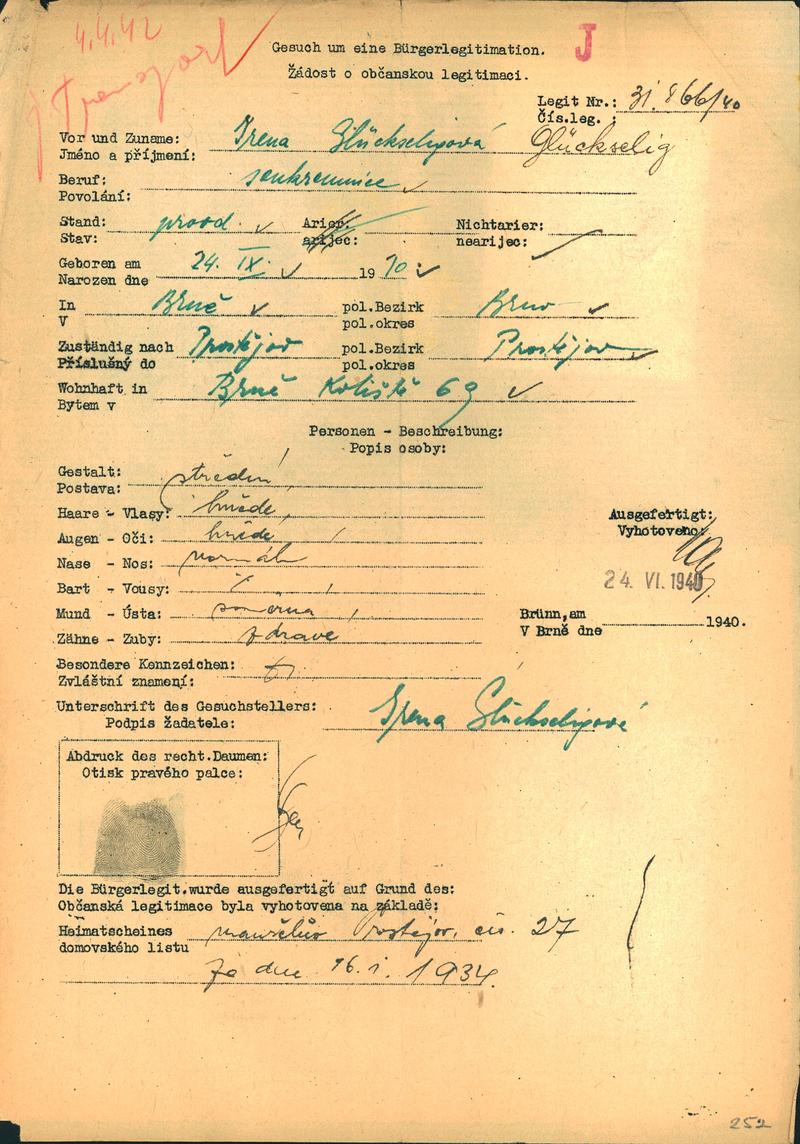 4.4.42
J
Transport
Gesuch um eine Bürgerlegitimation.
Žádost o občanskou legitimaci.
Legit Nr.: 31.866/40
Čís.leg. :
Vor und Zuname: Irena Glückseligová Glückselig
Jméno a příjmení:
Beruf: soukromnice
Povolání:
Stand: provd. Arier: Nichtarier:
Stav: arijec: nearijec:
Geboren am 24. IX. 1910.
Narozen dne
In Brně pol.Bezirk Brno
V pol.okres
Zuständig nach Prostějov pol.Bezirk Prostějov
Příslušný do pol.okres
Wohnhaft in Brně Koliště 69
Bytem v
Personen - Beschreibung:
Popis osoby:
Gestalt: střední
Postava:
Haare - Vlasy: hnědé
Augen - Oči: hnědé
Nase - Nos: normál
Bart - Vousy:
Mund - Ústa: souměrná
Zähne - Zuby: zdravé
Ausgefertigt:
Vyhotoveno:
24. VI. 1940
Brünn, am 1940.
V Brně dne
Besondere Kennzeichen:
Zvláštní znamení:
Unterschrift des Gesuchstellers: Irena Glückseligová
Podpis žadatele:
Abdruck des recht.Daumen:
Otisk pravého palce:
Die Bürgerlegit.wurde ausgefertigt auf Grund des:
Občanská legitimace byla vyhotovena na základě:
Heimatscheines manželův Prostějov, čís. 27
domovského listu
ze dne 16.i. 1934.
252